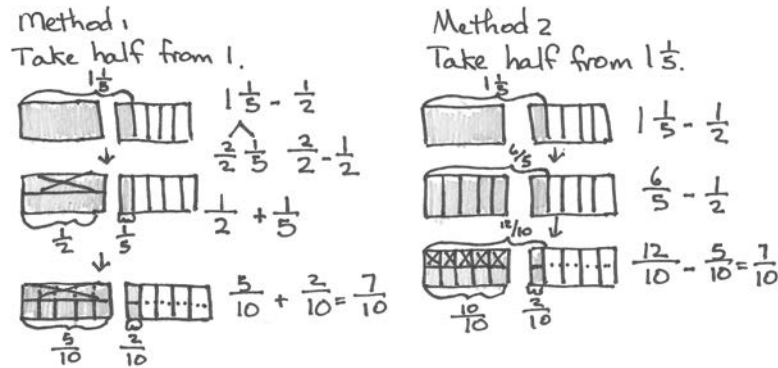 Method 1
Take half from 1.
1 1/5
1 1/5 - 1/2
2/2 1/5 2/2 - 1/2
1/2 1/5
1/2 + 1/5
5/10 + 2/10 = 7/10
5/10 2/10
Method 2
Take half from 1 1/5.
1 1/5
1 1/5 - 1/2
6/5
6/5 - 1/2
12/10
12/10 - 5/10 = 7/10
10/10 2/10